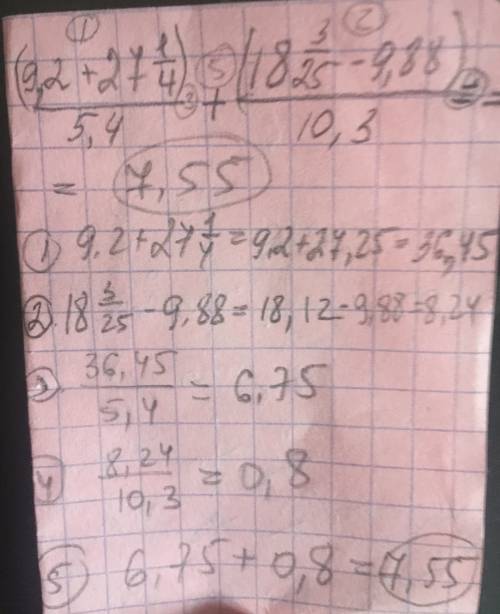 ① ②
(9,2 + 27 1/4) ⑤ (18 3/25 - 9,88)
③ + ④ =
5,4 10,3
= 7,55
① 9,2 + 27 1/4 = 9,2 + 27,25 = 36,45
② 18 3/25 - 9,88 = 18,12 - 9,88 = 8,24
③ 36,45 / 5,4 = 6,75
④ 8,24 / 10,3 = 0,8
⑤ 6,75 + 0,8 = 7,55